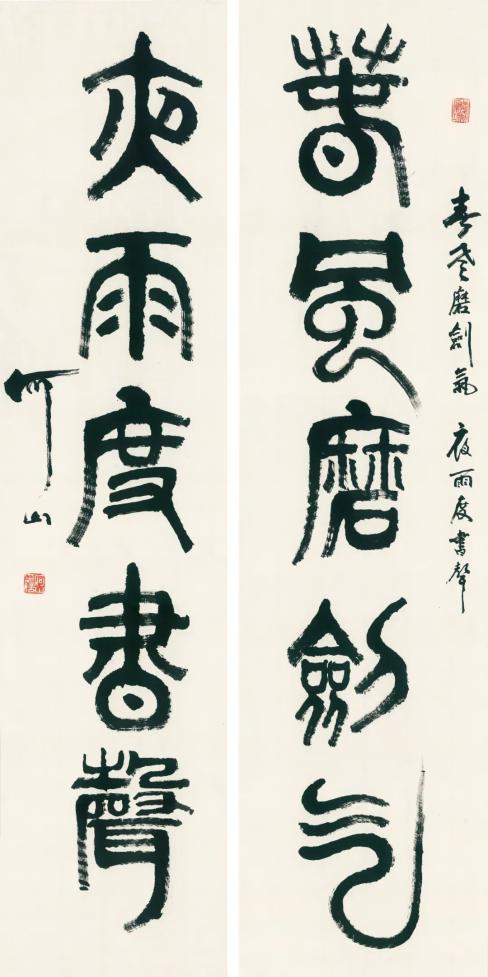 春風磨劍氣 夜雨度書聲
春風磨劍气
夜雨度書聲
何山